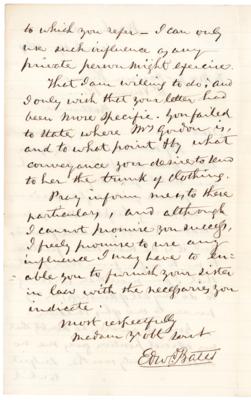 to which you refer — I can only
use such influence as any
private person might exercise.
That I am willing to do; and
I only wish that your letter had
been more specific. You failed
to state where Mrs Gordon is,
and to what point & by what
conveyance you desire to send
to her the trunk of clothing.
Pray inform me, as to these
particulars, and although
I cannot promise you success,
I freely promise to use any
influence I may have to en-
able you to furnish your sister
in law with the necessaries you
indicate.
Most respectfully
Madam Yr obt Servt
Edw. Bates